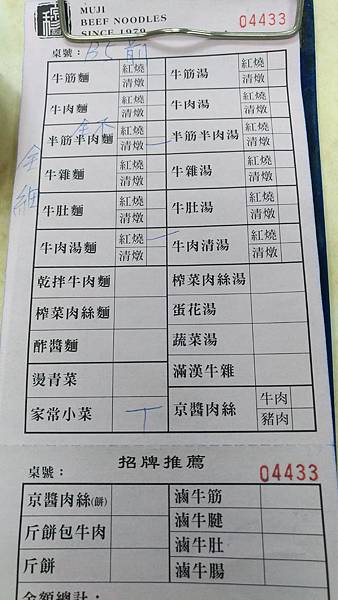 MUJI
BEEF NOODLES
SINCE 1979
04433
桌號： B5 前
牛筋麵 紅燒 清燉 牛筋湯 紅燒 清燉
牛肉麵 紅燒 清燉 牛肉湯 紅燒 清燉
半筋半肉麵 紅燒 清燉 半筋半肉湯 紅燒 清燉
全細
牛雜麵 紅燒 清燉 牛雜湯 紅燒 清燉
牛肚麵 紅燒 清燉 牛肚湯 紅燒 清燉
牛肉湯麵 紅燒 清燉 牛肉清湯 紅燒 清燉
乾拌牛肉麵 榨菜肉絲湯
榨菜肉絲麵 蛋花湯
酢醬麵 蔬菜湯
燙青菜 滿漢牛雜
家常小菜 京醬肉絲 牛肉 豬肉
招牌推薦
桌號： 04433
京醬肉絲(餅) 滷牛筋
斤餅包牛肉 滷牛腱
斤餅 滷牛肚
滷牛腸
金額總計：